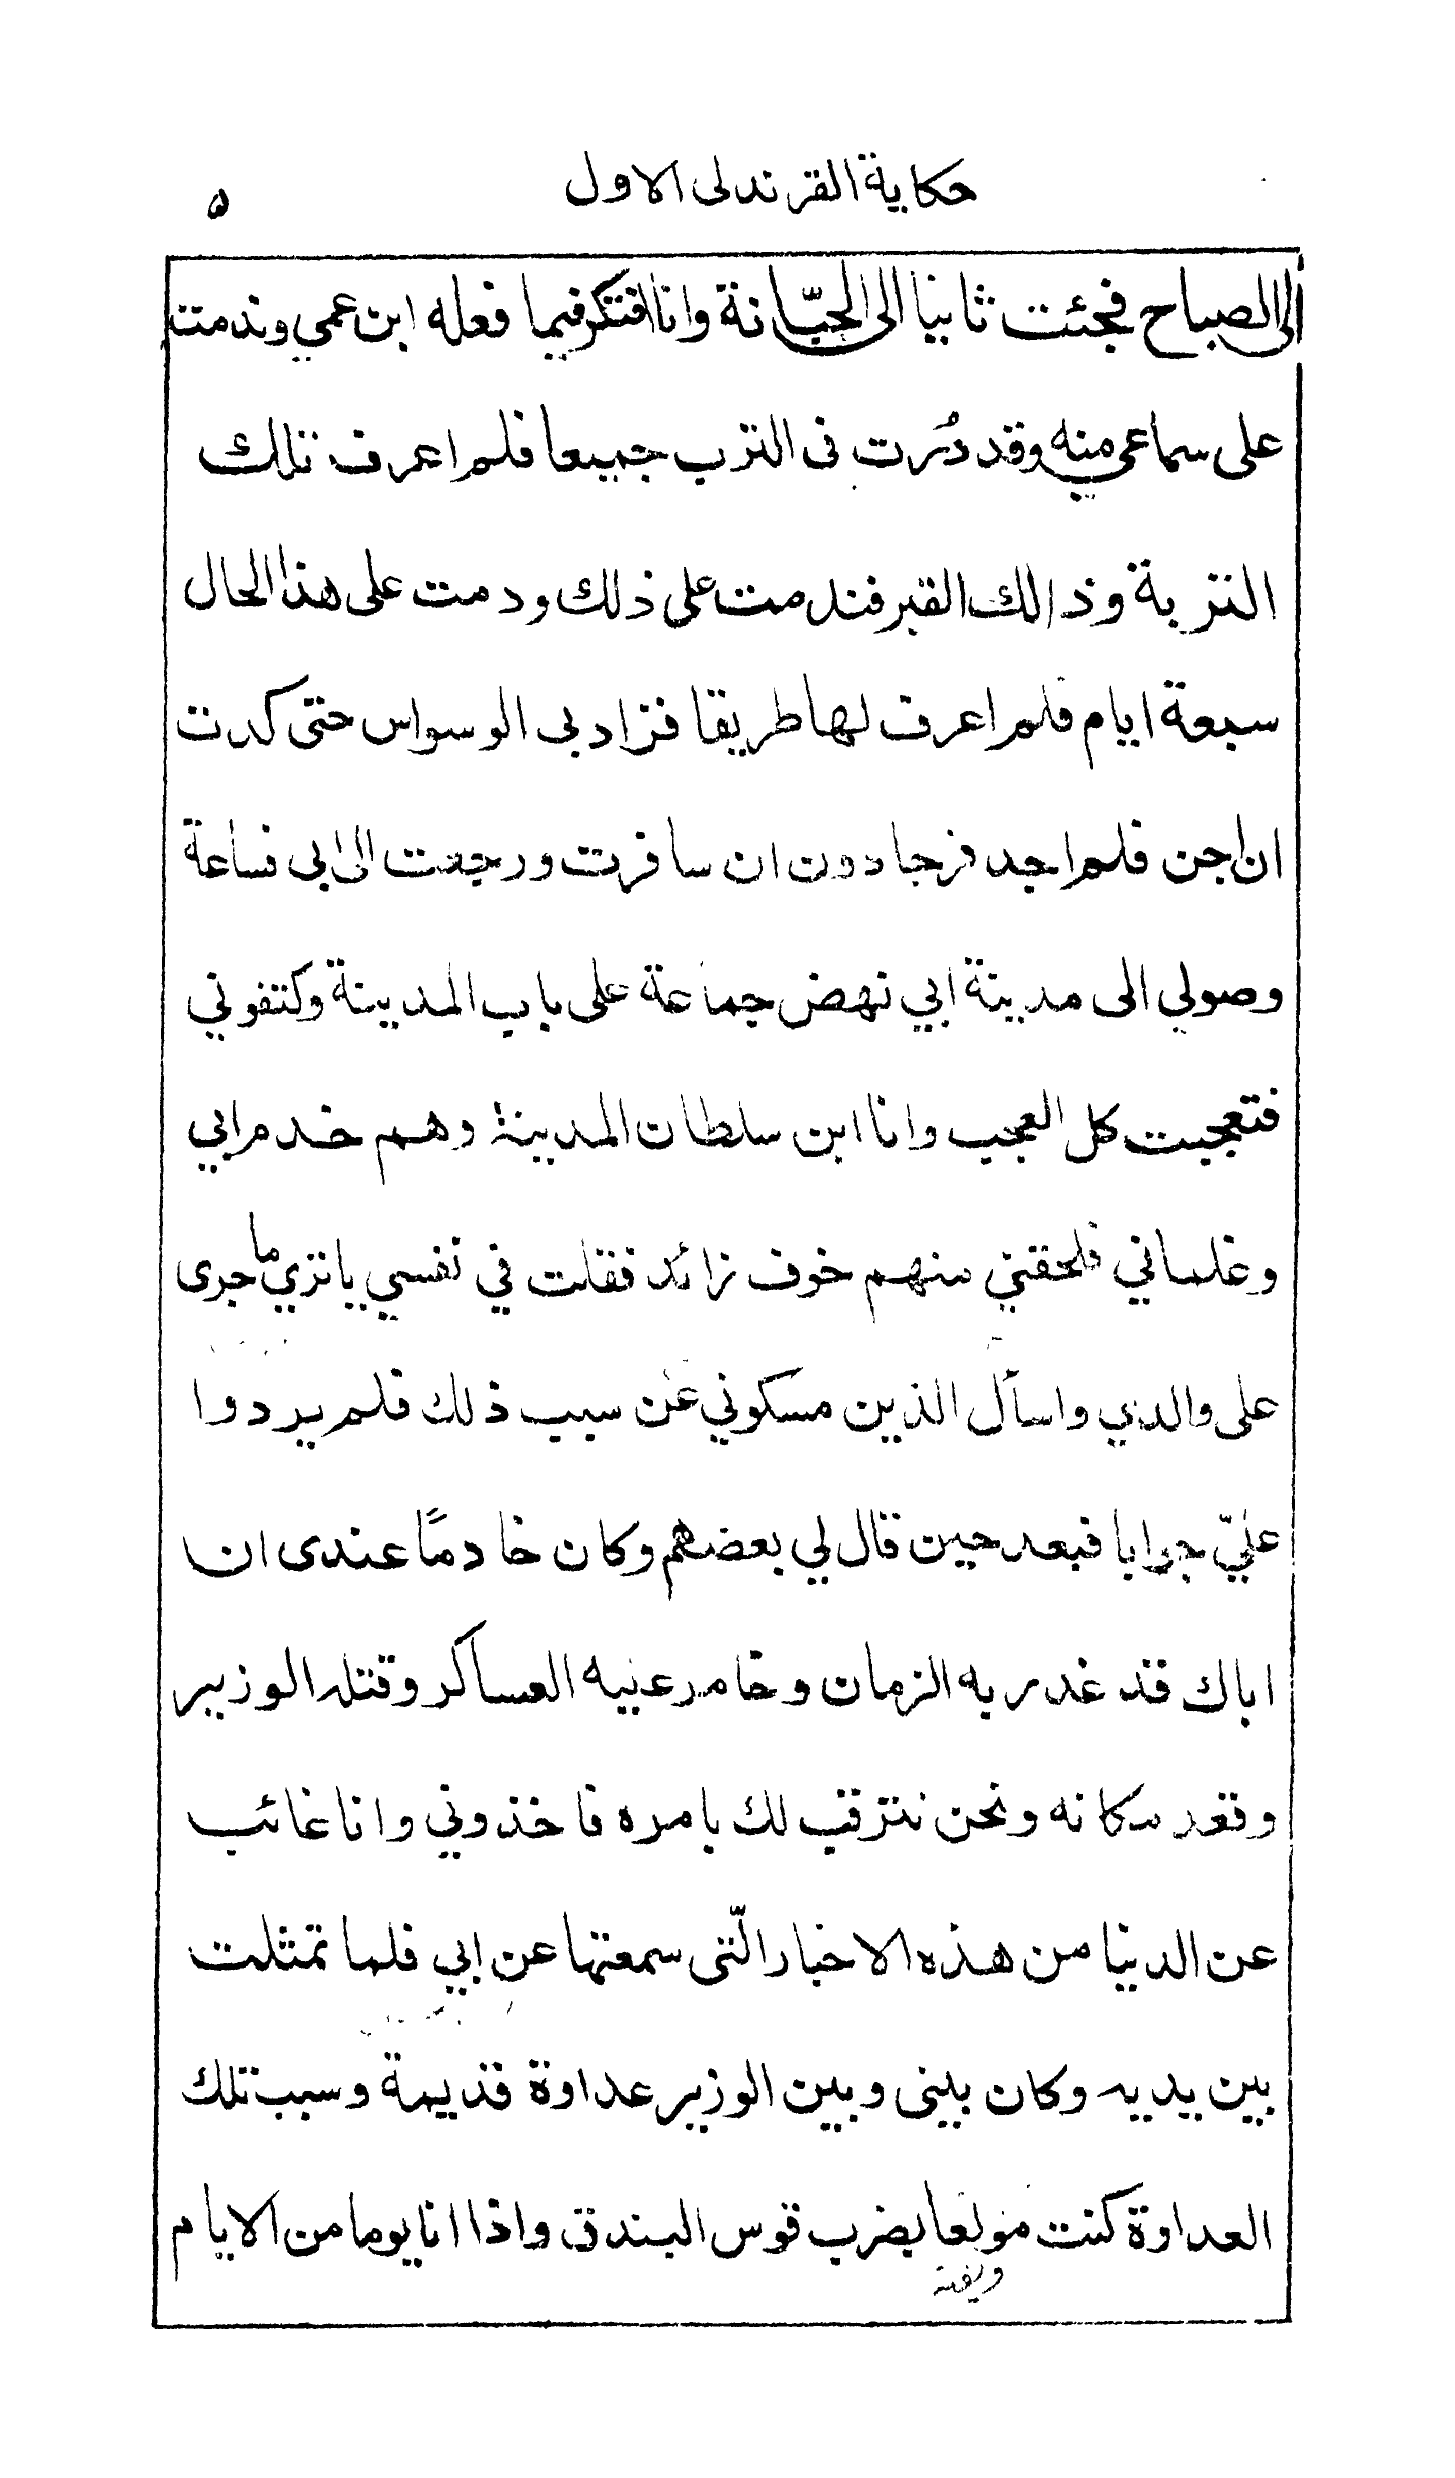 حكاية القرندلى الاول
۵
الى الصباح فجئت ثانيا الى الجبّانة وانا افتكر فيما فعله ابن عمي وندمت
على سماعي منه وقد دُرت فى الترب جميعا فلم اعرف تلك
التربة وذالك القبر فندمت على ذلك ودمت على هذا الحال
سبعة ايام فلم اعرف لها طريقا فزاد بى الوسواس حتى كدت
ان اجن فلم اجد فرجا دون ان سافرت ورجعت الى ابى فساعة
وصولي الى مدينة ابي نهض جماعة على باب المدينة وكتفوني
فتعجبت كل العجب وانا ابن سلطان المدينة وهم خدم ابي
وغلماني فلحقني منهم خوف زائد فقلت في نفسي يا تري ما جرى
على والدي واسأل الذين مسكوني عن سبب ذلك فلم يردوا
عليّ جوابا فبعد حين قال لي بعضهم وكان خادمًا عندى ان
اباك قد غدر به الزمان وخامر عليه العساكر وقتله الوزير
وقعد مكانه ونحن نترقب لك بامره فاخذوني وانا غائب
عن الدنيا من هذه الاخبار الّتى سمعتها عن ابي فلما تمثلت
بين يديه وكان بينى وبين الوزير عداوة قديمة وسبب تلك
العداوة كنت مولعا بضرب قوس البندق واذا انا يوما من الايام